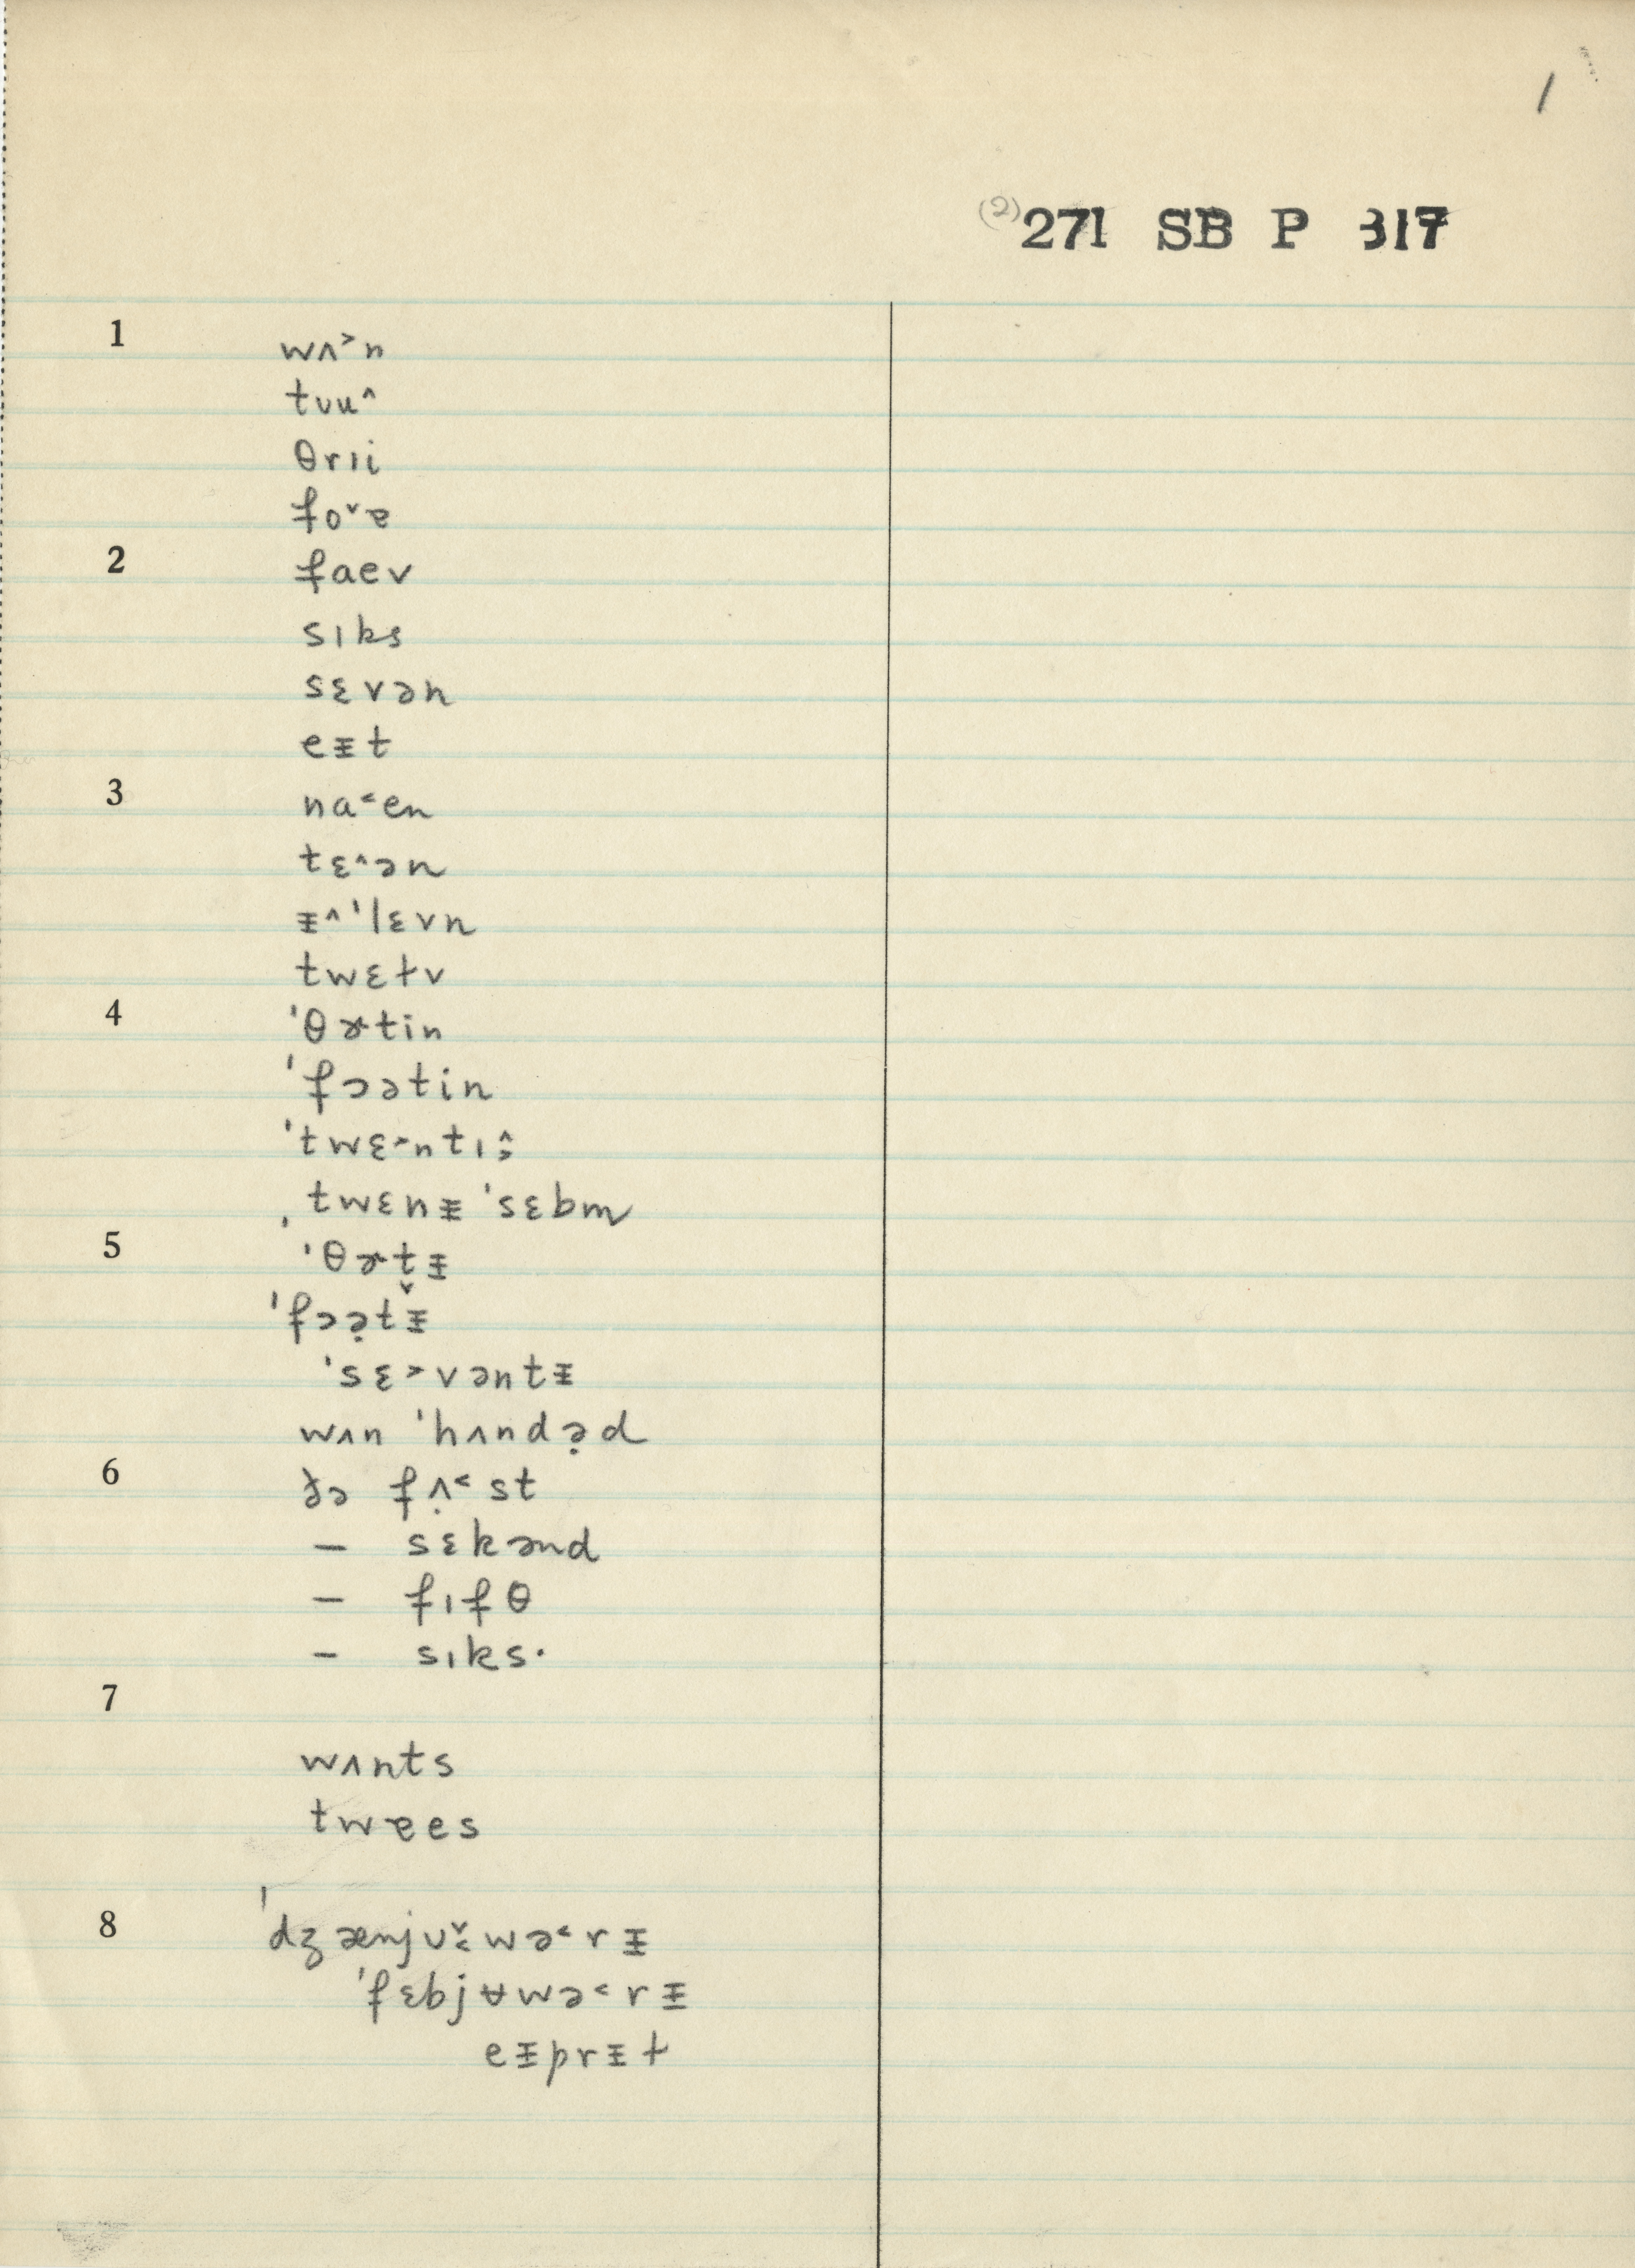 1
(2) 271 SB P 317
1 wʌ˃n
tʊu˄
θrɪi
fo˅ɐ
2 faev
sɪks
sɛvən
eᵻt
3 na˂en
tɛ˄ən
ᵻ˄ˈlɛvn
twɛɫv
4 ˈθɚtin
ˈfɔətin
ˈtwɛ˄ntɪ
ˌtwɛnᵻ ˈsɛbm
5 ˈθɚt̬ᵻ
ˈfɔə̣tᵻ˅
ˈsɛ˃vəntᵻ
wʌn ˈhʌndə̣d
6 ðə fʌ̣˂st
— sɛkənd
— fɪfθ
— sɪks·
7
wʌnts
twɐes
8 ˈdʒænjʊwə˂rᵻ
ˈfɛbjʉwə˂rᵻ
eᵻprᵻɫ